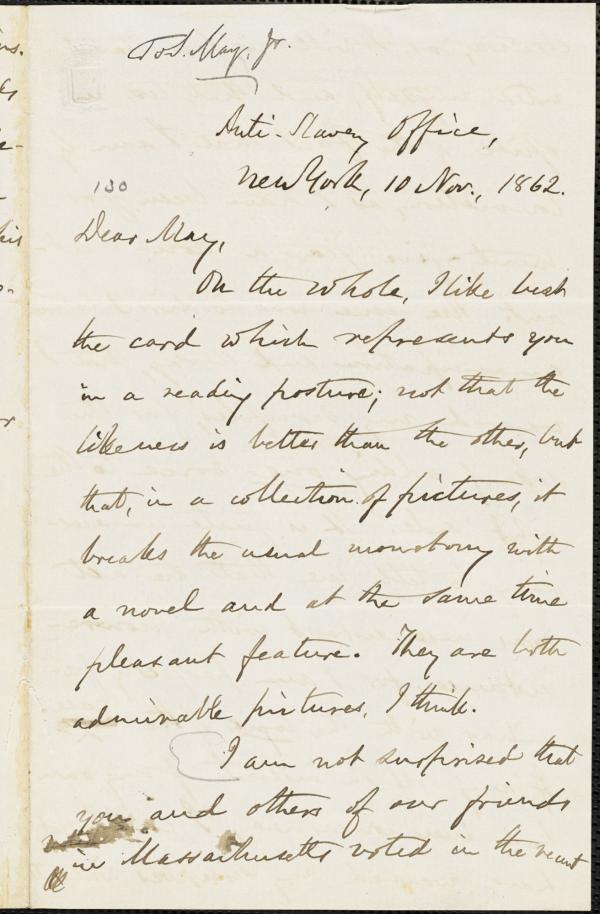 To S. May, Jr.
Anti-Slavery Office,
New York, 10 Nov., 1862.
130
Dear May,
On the whole, I like best
the card which represents you
in a reading posture; not that the
likeness is better than the other, but
that, in a collection of pictures, it
breaks the usual monotony with
a novel and at the same time
pleasant feature. They are both
admirable pictures, I think.
I am not surprised that
you and others of our friends
in Massachusetts voted in the recent